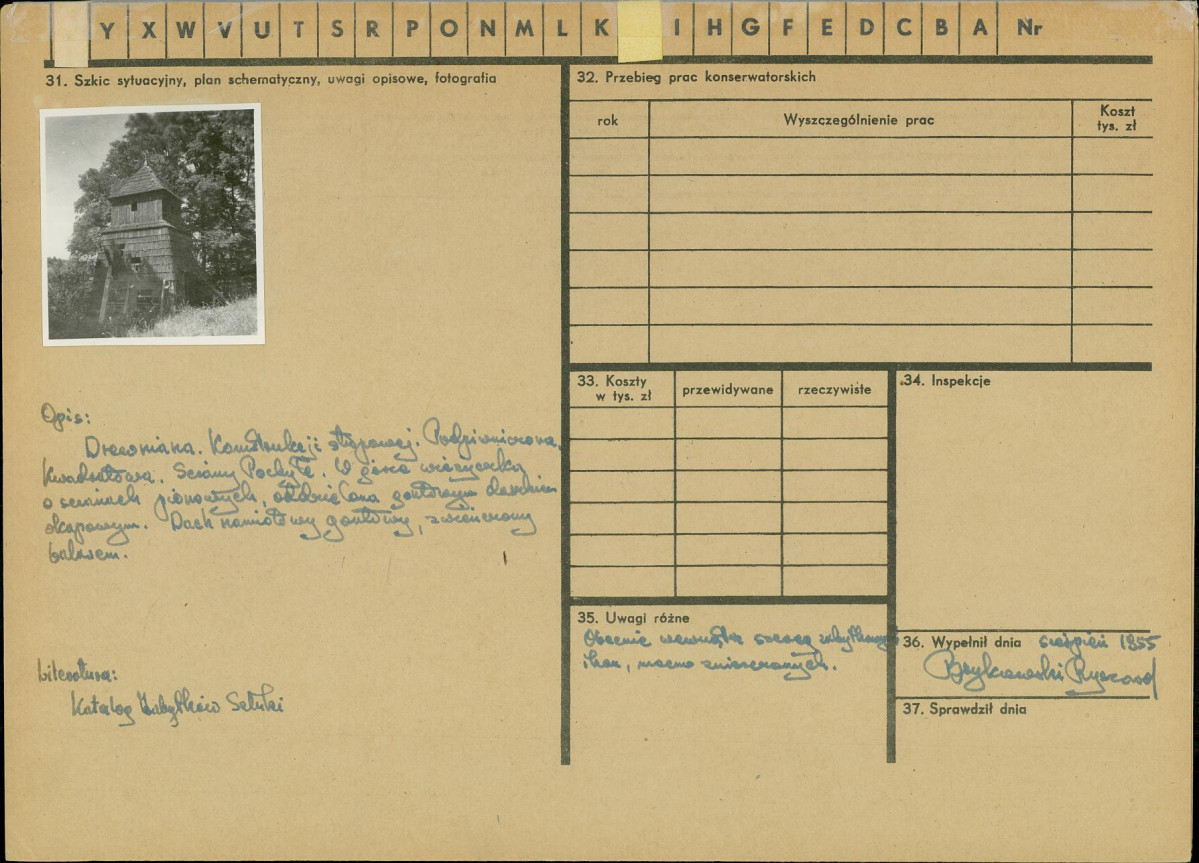 Y X W V U T S R P O N M L K I H G F E D C B A Nr
31. Szkic sytuacyjny, plan schematyczny, uwagi opisowe, fotografia
Opis:
Drewniana. Konstrukcji słupowej. Podpiwniczona.
Kwadratowa. Ściany Pochyłe. W górze wieżyczka
o ścianach pionowych, oddzielona gontowym daszkiem
okapowym. Dach namiotowy gontowy, zwieńczony
balasem.
Literatura:
Katalog Zabytków Sztuki
32. Przebieg prac konserwatorskich
rok
Wyszczególnienie prac
Koszt
tys. zł
33. Koszty
w tys. zł
przewidywane
rzeczywiste
34. Inspekcje
35. Uwagi różne
Obecnie wewnątrz szereg zabytkowych
ikon, mocno zniszczonych.
36. Wypełnił dnia sierpień 1955
Brykowski Ryszard
37. Sprawdził dnia